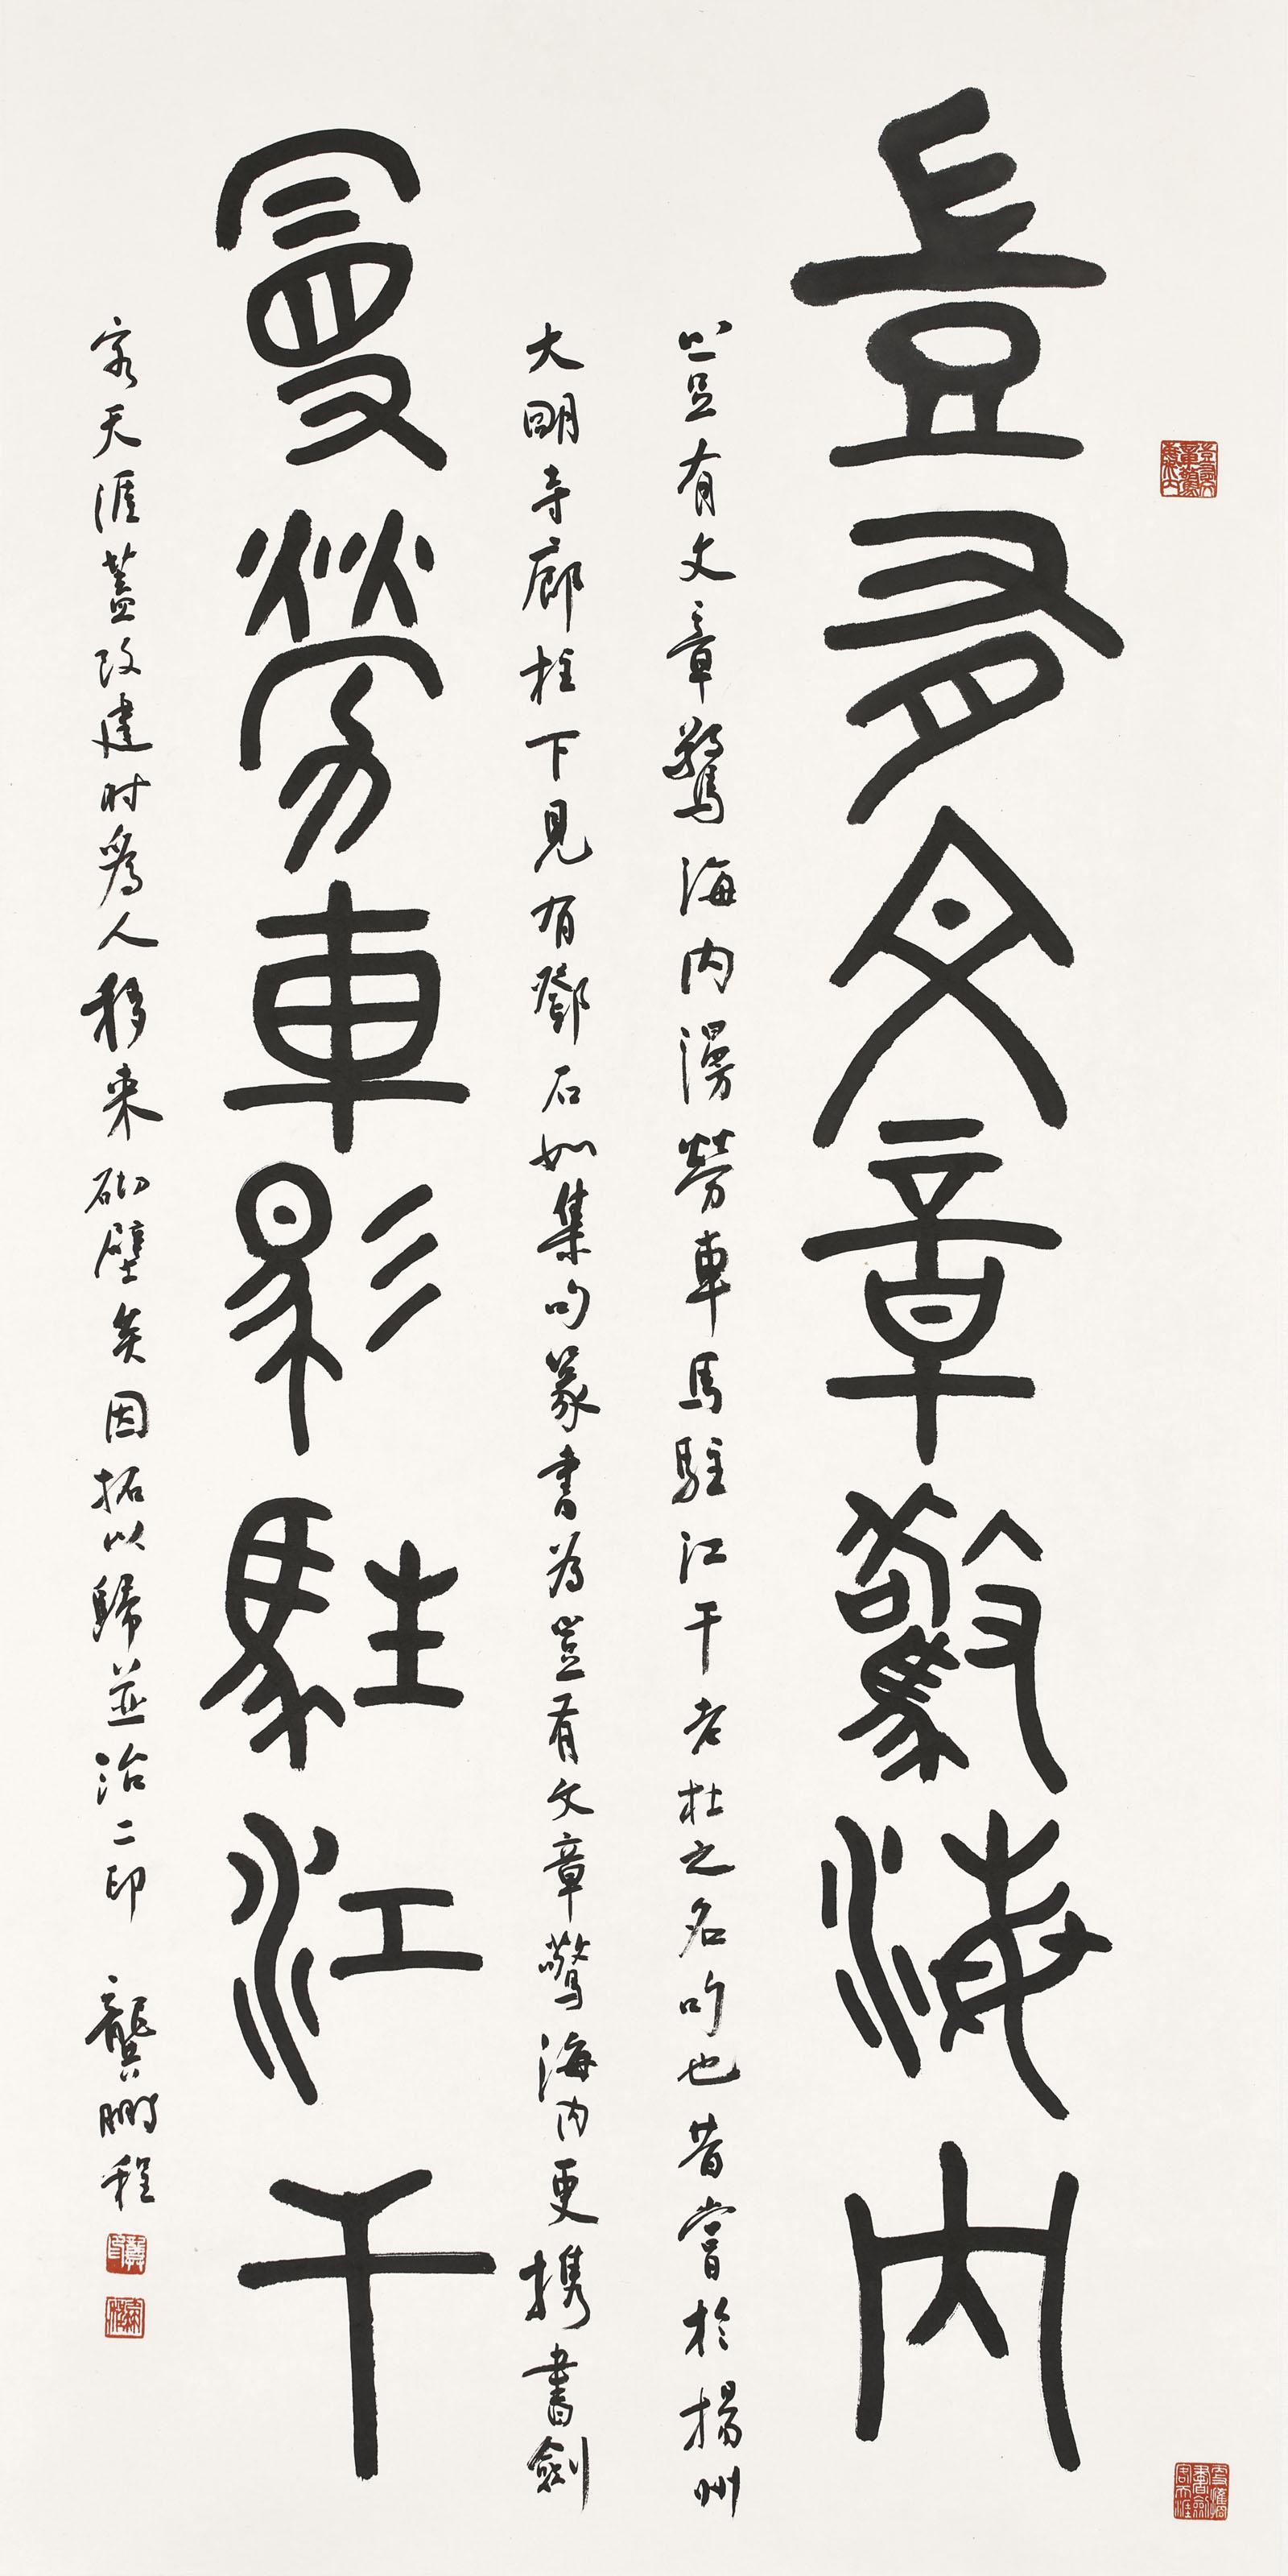 豈有文章驚海內
豈有文章驚海內漫勞車馬駐江干老杜之名句也昔嘗於揚州
大明寺廊柱下見有鄧石如集句篆書為豈有文章驚海内更携書劍
漫勞車馬駐江干
客天涯蓋改建时為人移来砌壁矣因拓以歸並治二印 龔鵬程
豈有文章驚海內
更攜書劍客天涯